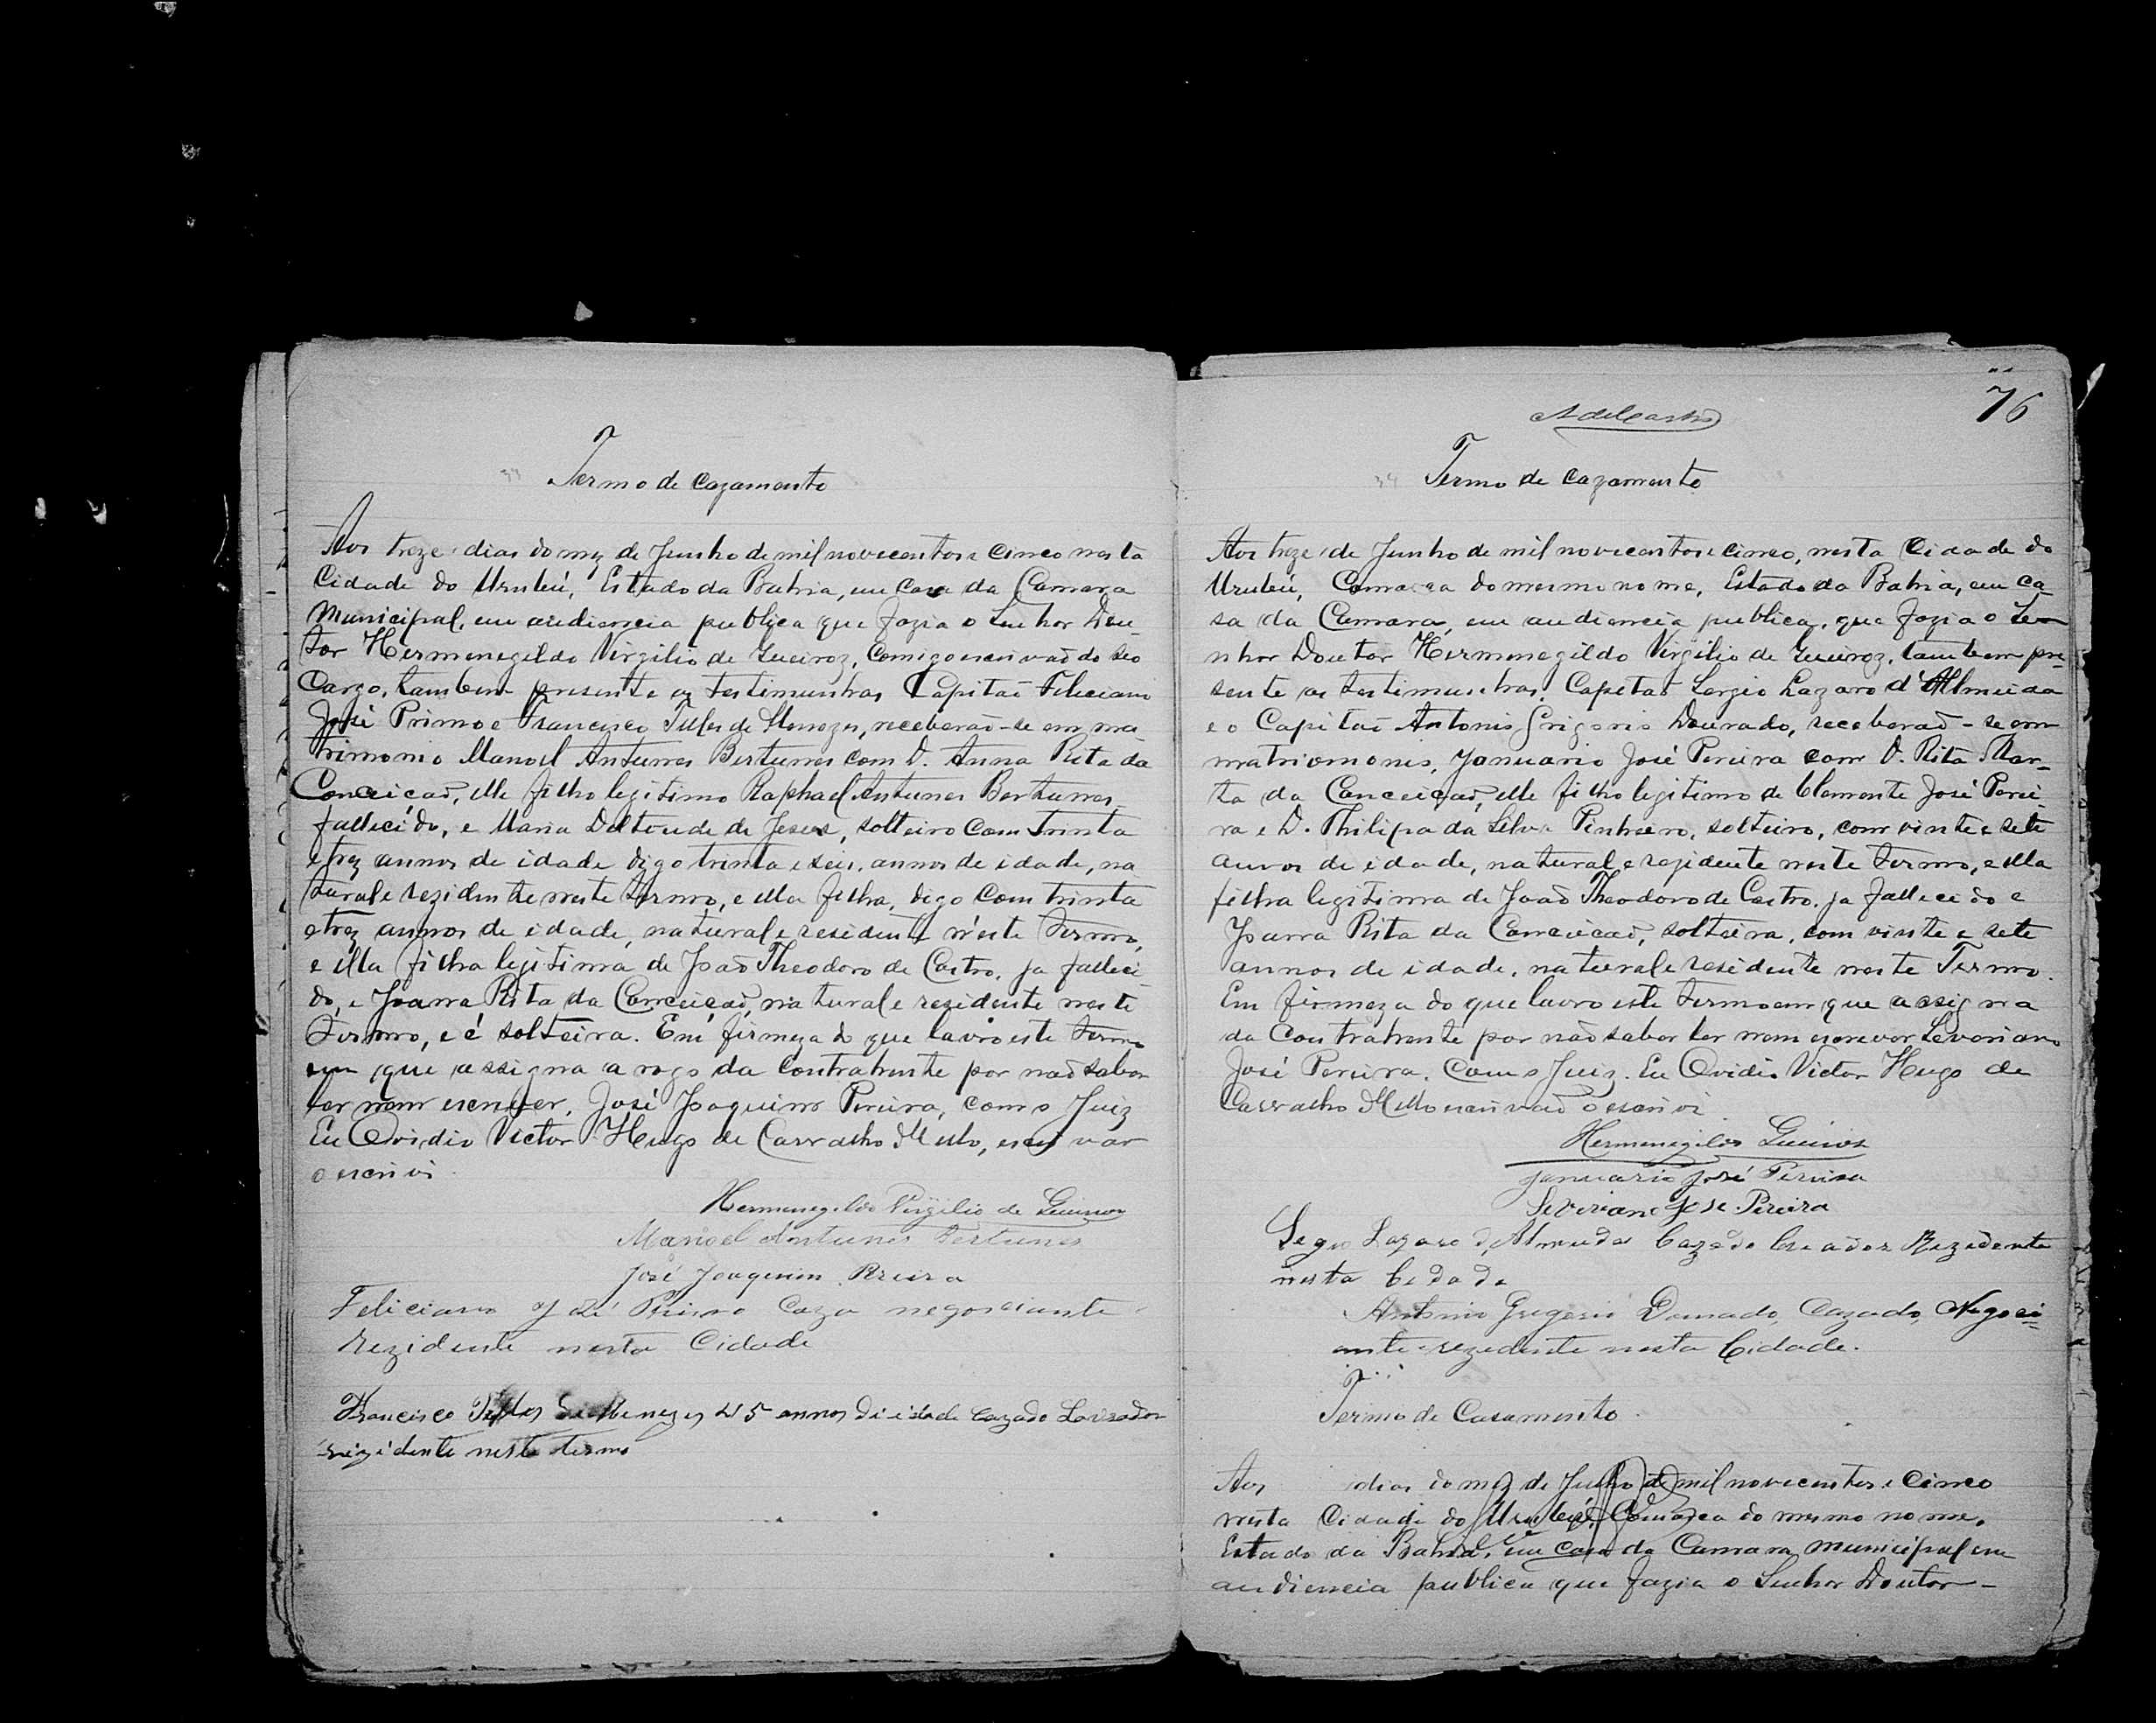 Termo de cazamento
Aos treze dias do mez de Junho de mil novecentos e cinco nesta
Cidade do Urubú, Estado da Bahia, em casa da Camara
Municipal, em audiencia publica que fazia o Senhor Dou-
tor Hermenegildo Virgilio de Queiroz, comigo escrivaõ do seo
Cargo, tambem presente as testimunhas Capitaõ Feliciano
José Primo e Francisco Telles de Menezes, receberaõ-se em ma-
trimonio Manoel Antunes Bertunes com D. Anna Rita da
Conceicaõ, elle filho legitimo Raphael Antunes Bertunes
fallecido, e Maria de Jesus, solteiro com trinta
e trez annos de idade digo trinta e seis annos de idade, na
tural e rezidente neste termo, e ella filha, digo com trinta
e trez annos de idade, natural e residente n'este termo,
e ella filha legitima de Joaõ Theodoro de Castro, ja falleci
do, e Joanna Rita da Conceicaõ, natural e rezidente neste
termo, e é solteira. Em firmeza do que lavro este termo
em que assigna a rogo da contrahente por naõ saber
ler nem escrever, José Joaquim Pereira, com o Juiz
Eu Ovidio Victor Hugo de Carvalho Mello, escrivaõ
o escrivi.
Hermenegildo Virgilio de Queiroz
Manoel Antunes Bertunes
José Joaquim Pereira
Feliciano José Primo Cazado negosciante
rezidente nesta Cidade
Francisco Telles de Menezes 45 annos di idade cazado Lavrador
rezidente neste termo
76
A de Castro
Termo de cazamento
Aos treze de Junho de mil novecentos e cinco, nesta Cidade do
Urubú, Comarca do mesmo nome, Estado da Bahia, em ca-
sa da Camara, em audiencia publica, que fazia o Se-
nhor Doutor Hermenegildo Virgilio de Queiroz, tambem pre-
sente as testimunhas, Capitaõ Sergio Lazaro d'Allmeida
e o Capitaõ Antonio Grigorio Dourado, receberaõ-se em
matriomonio, Januario José Pereira com D. Rita Mar-
ta da Conceiçaõ, elle filho legitimo de Clemente José Perei-
ra e D. Philipa da Silva Pinheiro, solteiro, com vinte e sete
annos de idade, natural e rezidente neste termo, e ella
filha legitima de Joaõ Theodoro de Castro, ja fallecido e
Joanna Rita da Conceicaõ, solteira, com vinte e sete
annos de idade, natural e residente neste Termo.
Em firmeza do que lavro este termo em que assigna
da Contrahente por naõ saber ler nem escrever Severiano
José Pereira, com o Juiz. Eu Ovidio Victor Hugo de
Carvalho Mello escrivaõ o escrivi
Hermenegildo Queiroz
Januario José Pereira
Severiano José Pereira
Sergio Lazaro d'Almeida Cazado Creador Rezidente
nesta Cidade
Antonio Gregorio Dourado, Cazado, Negoci-
ante rezedente nesta Cidade.
Termo de Casamento
Aos dias do mez de Junho de mil novecentos e cinco
nesta Cidade do Urubú, Comarca do mesmo nome,
Estado da Bahia, em casa da Camara Municipal em
audiencia publica que fazia o Senhor Doutor-